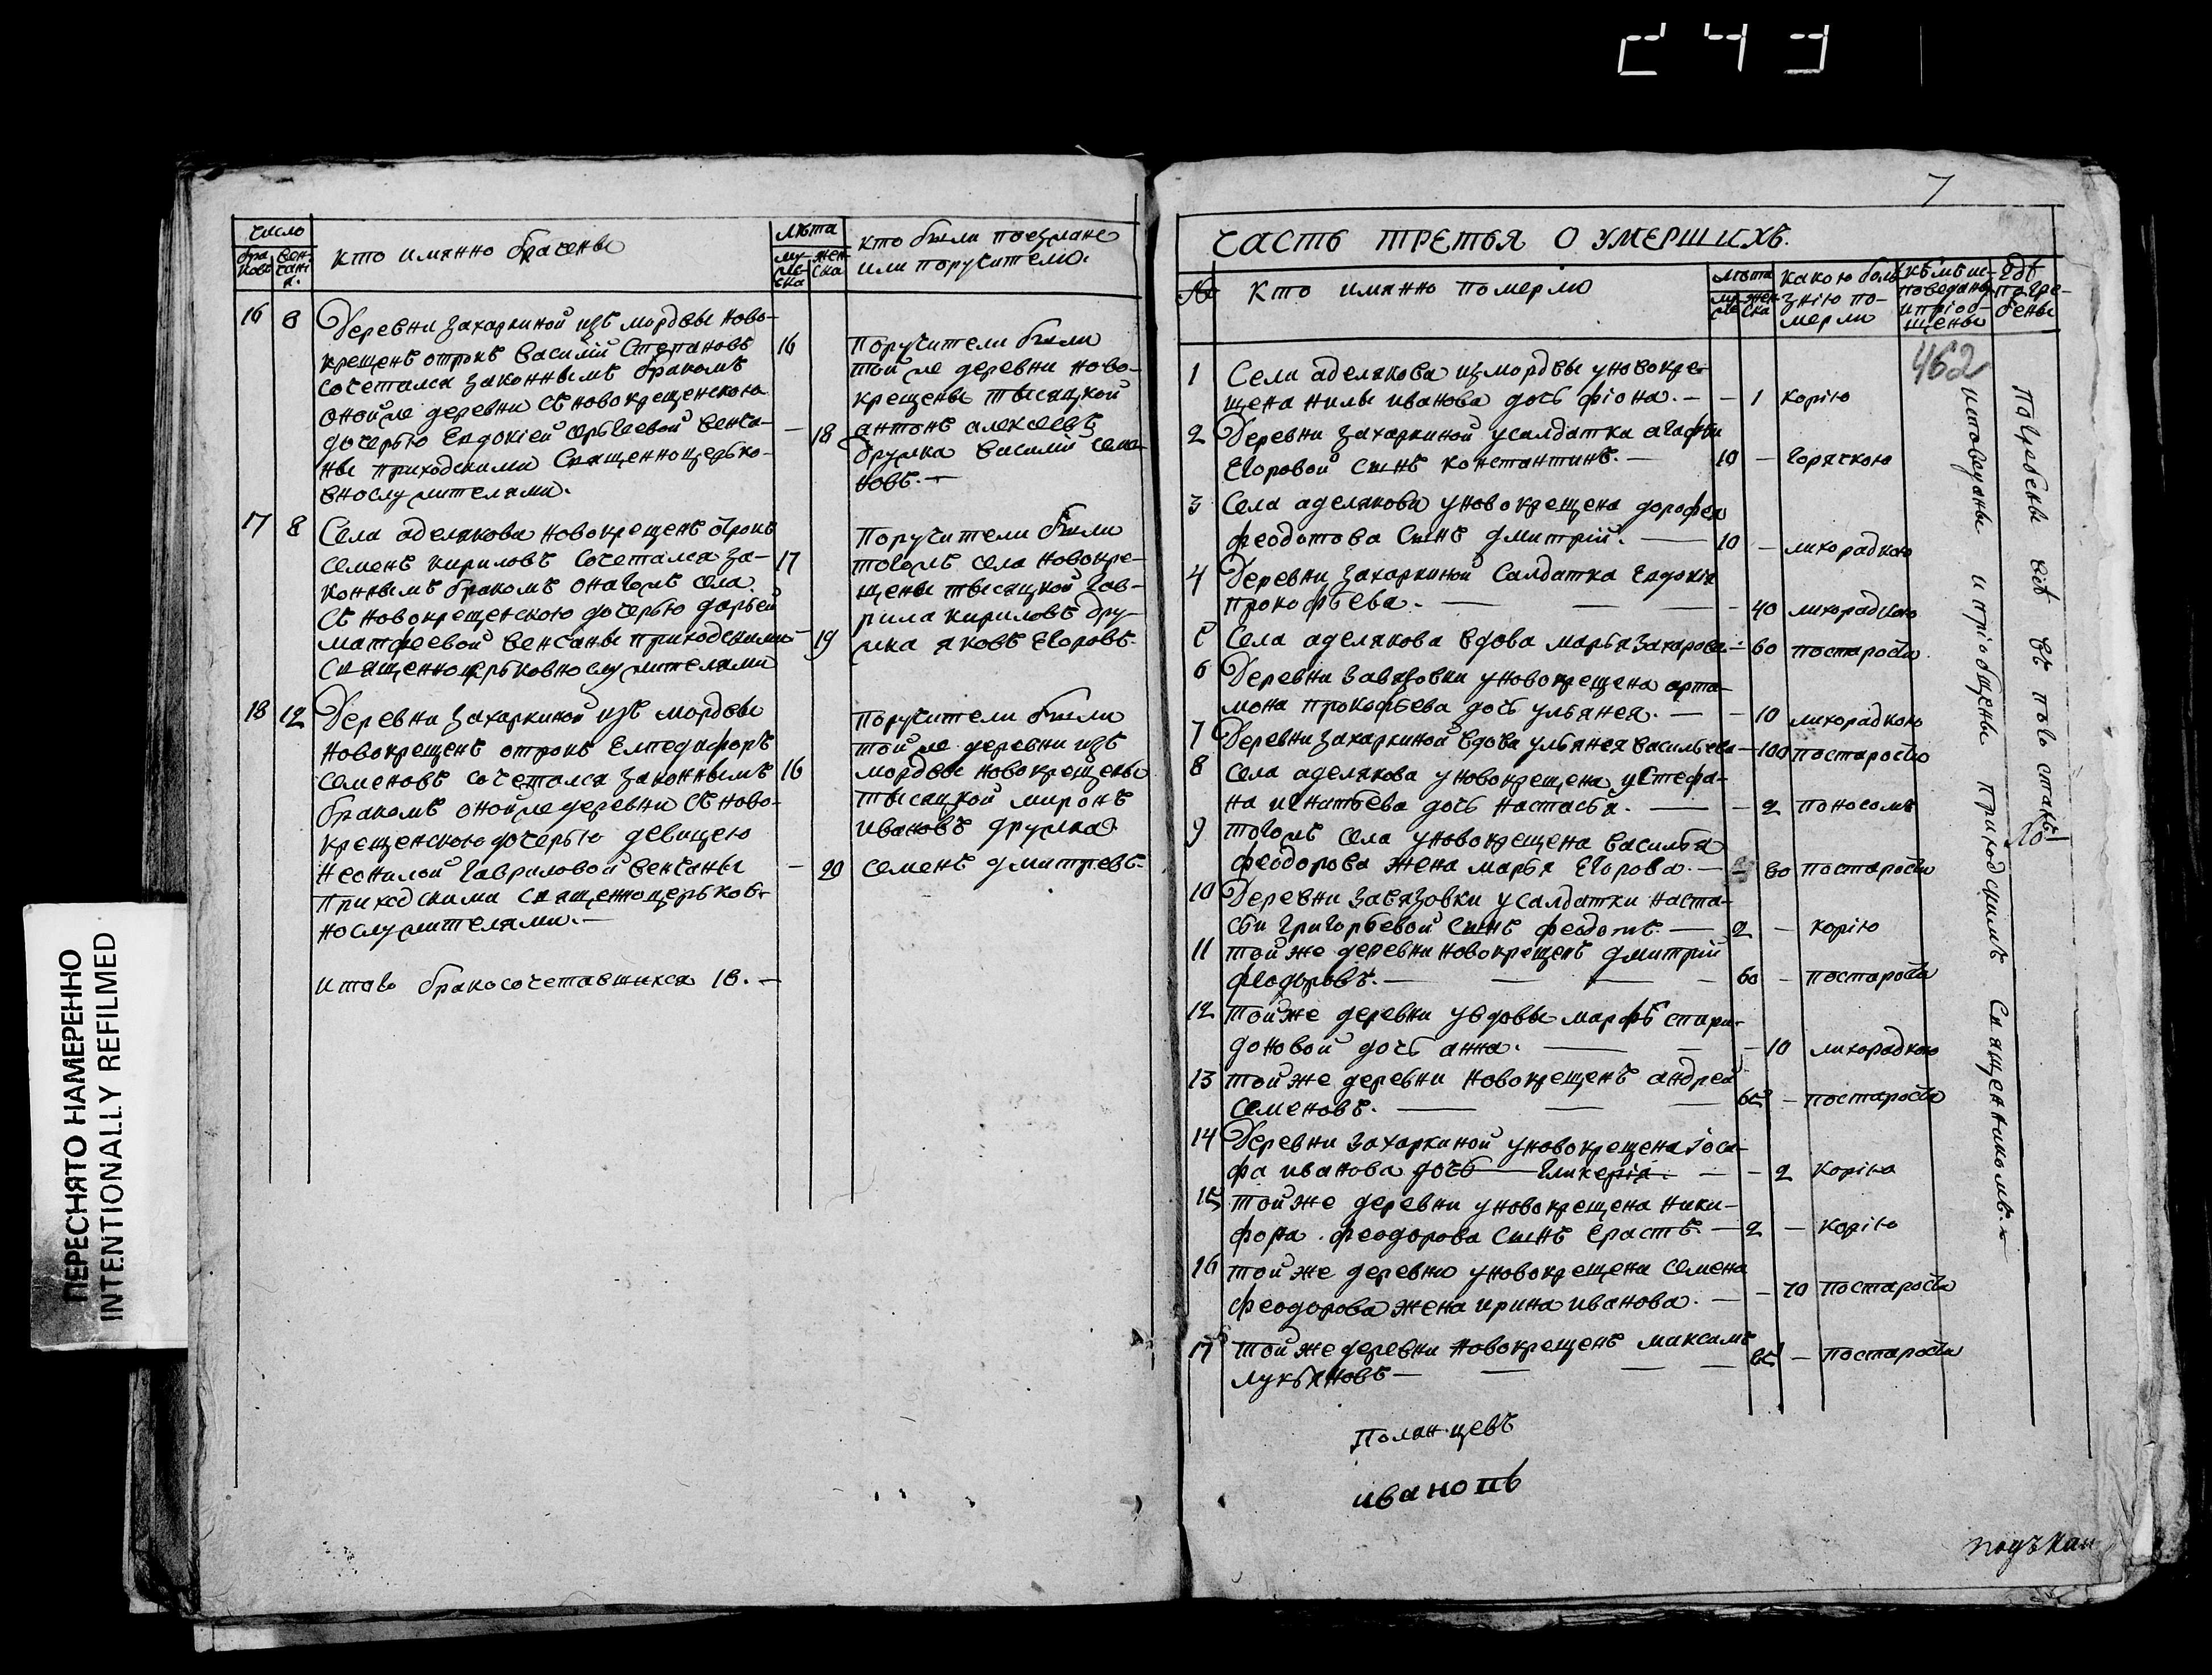 249
ПЕРЕСНЯТО НАМЕРЕННО
INTENTIONALLY REFILMED
число
бра ковъ
вен чани я.
кто имянно браченъ
лѣта
му- же ска
жен ска
кто были поезжане
или поручители.
16 8 Деревни Захаркиной изъ мордвы ново-
крещенъ отрокъ василій Степановъ 16
сочетался законнымъ бракомъ
оной же деревни съ новокрещенскою
дочерью Евдокіей венча- — 18
ны приходскими Священноцерько-
внослужителями.
Поручители были
той же деревни ново-
крещены тысяцкой
антонъ алексеевъ
дружка василій семе
новъ. —
17 8 Села аделякова новокрещенъ отрокъ
семенъ кириловъ сочетался за- 17
коннымъ бракомъ онагожъ села
съ новокрещенскою дочерью дарьей
матфеевой венчаны приходскими — 19
Священноцерьковнослужителями
Поручители были
тогожъ села новокре-
щены тысяцкой гав-
рила кириловъ дру-
жка яковъ Егоровъ.
18 12 Деревни Захаркиной изъ мордвы
новокрещенъ отрокъ Елпедифоръ
семеновъ сочетался законнымъ 16
бракомъ оной же деревни съ ново-
крещенскою дочерью девицею
неонилой гавриловой венчаны — 20
приходскими Священноцерьков-
нослужителями. —
поручители были
той же деревни изъ
мордвы новокрещены
тысяцкой миронъ
ивановъ дружка
семенъ дмитревъ.
итаго бракосочетавшихся 18. —
7
ЧАСТЬ ТРЕТЬЯ О УМЕРШИХЪ.
№
Кто имянно померло
лѣта
му же
жен ска
какою боле
знію по-
мерли
кѣмъ ис-
поведаны
и пріоб-
щены
гдѣ
погре-
бены
462
1 Села аделякова из мордвы у новокре
щена нилы иванова дочь фіона. — — 1 корію
2 Деревни захаркиной у салдатка агафьи
Егоровой сынъ константинъ. — 10 — горячкою
3 Села аделякова у новокрещена дорофея
феодотова сынъ дмитрій. — 10 — лихорадкою
4 Деревни захаркиной Салдатка Евдокія
прокофьева. — — — — 40 лихорадкою
5 Села аделякова вдова марья захарова — 60 постарости
6 Деревни завязовки у новокрещена арта-
мона прокофьева дочь ульянея. — — 10 лихорадкою
7 Деревни захаркиной вдова ульянея васильева — 100 постарости
8 села аделякова у новокрещена у стефа-
на игнатьева дочь настасья. — — 2 поносомъ
9 тогожъ села у новокрещена василья
феодорова жена марья Егорова. — 80 постарости
10 Деревни завязовки у салдатки наста-
сьи григорьевой сынъ феодотъ. — 2 — корію
11 той же деревни новокрещенъ дмитрій
феодоровъ. — — — — 60 — постарости
12 той же деревни у вдовы марфы спири-
доновой дочь анна. — — — 10 лихорадкою
13 той же деревни новокрещенъ андрей
семеновъ. — — — 65 — постарости
14 Деревни захаркиной у новокрещена іоси-
фа иванова дочь гликерія. — — 2 корію
15 той же деревни у новокрещена ники-
фора феодорова сынъ Ерастъ. — 2 — корію
16 той же деревни у новокрещена семена
феодорова жена ирина иванова. — — 70 постарости
17 той же деревни новокрещенъ максимъ
лукьяновъ — — — — 65 — постарости
исповеданы и пріобщены приходскимъ Священникомъ. —
Погребены всѣ въ пого стахъ
Поланцевъ
ивановъ